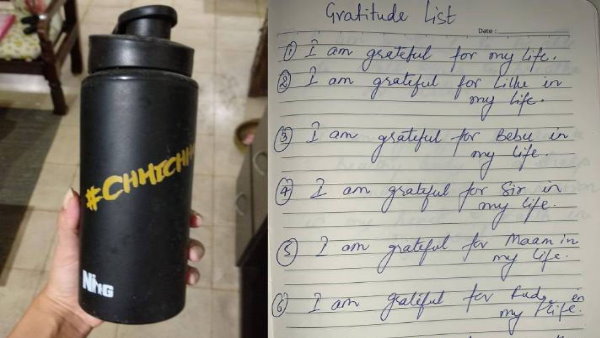 #CHHICHH
NNG
Gratitude List
Date :
① I am grateful for my life.
② I am grateful for Lillu in
my life.
③ I am grateful for Bebu in
my life.
④ I am grateful for Sir in
my life.
⑤ I am grateful for Maam in
my life.
⑥ I am grateful for in
my life.